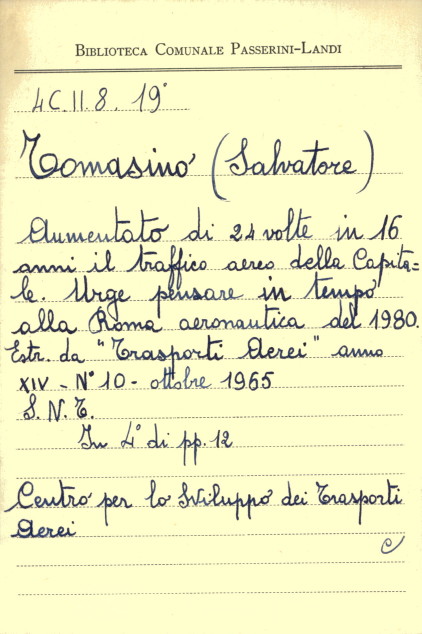 BIBLIOTECA COMUNALE PASSERINI-LANDI
4C.II.8.19°
Tomasino (Salvatore)
Aumentato di 24 volte in 16
anni il traffico aereo della Capita=
le. Urge pensare in tempo
alla Roma aeronautica del 1980.
Estr. da "Trasporti Aerei" anno
XIV - N° 10 - ottobre 1965
S. N. T.
In 4° di pp. 12
Centro per lo Sviluppo dei Trasporti
Aerei
C